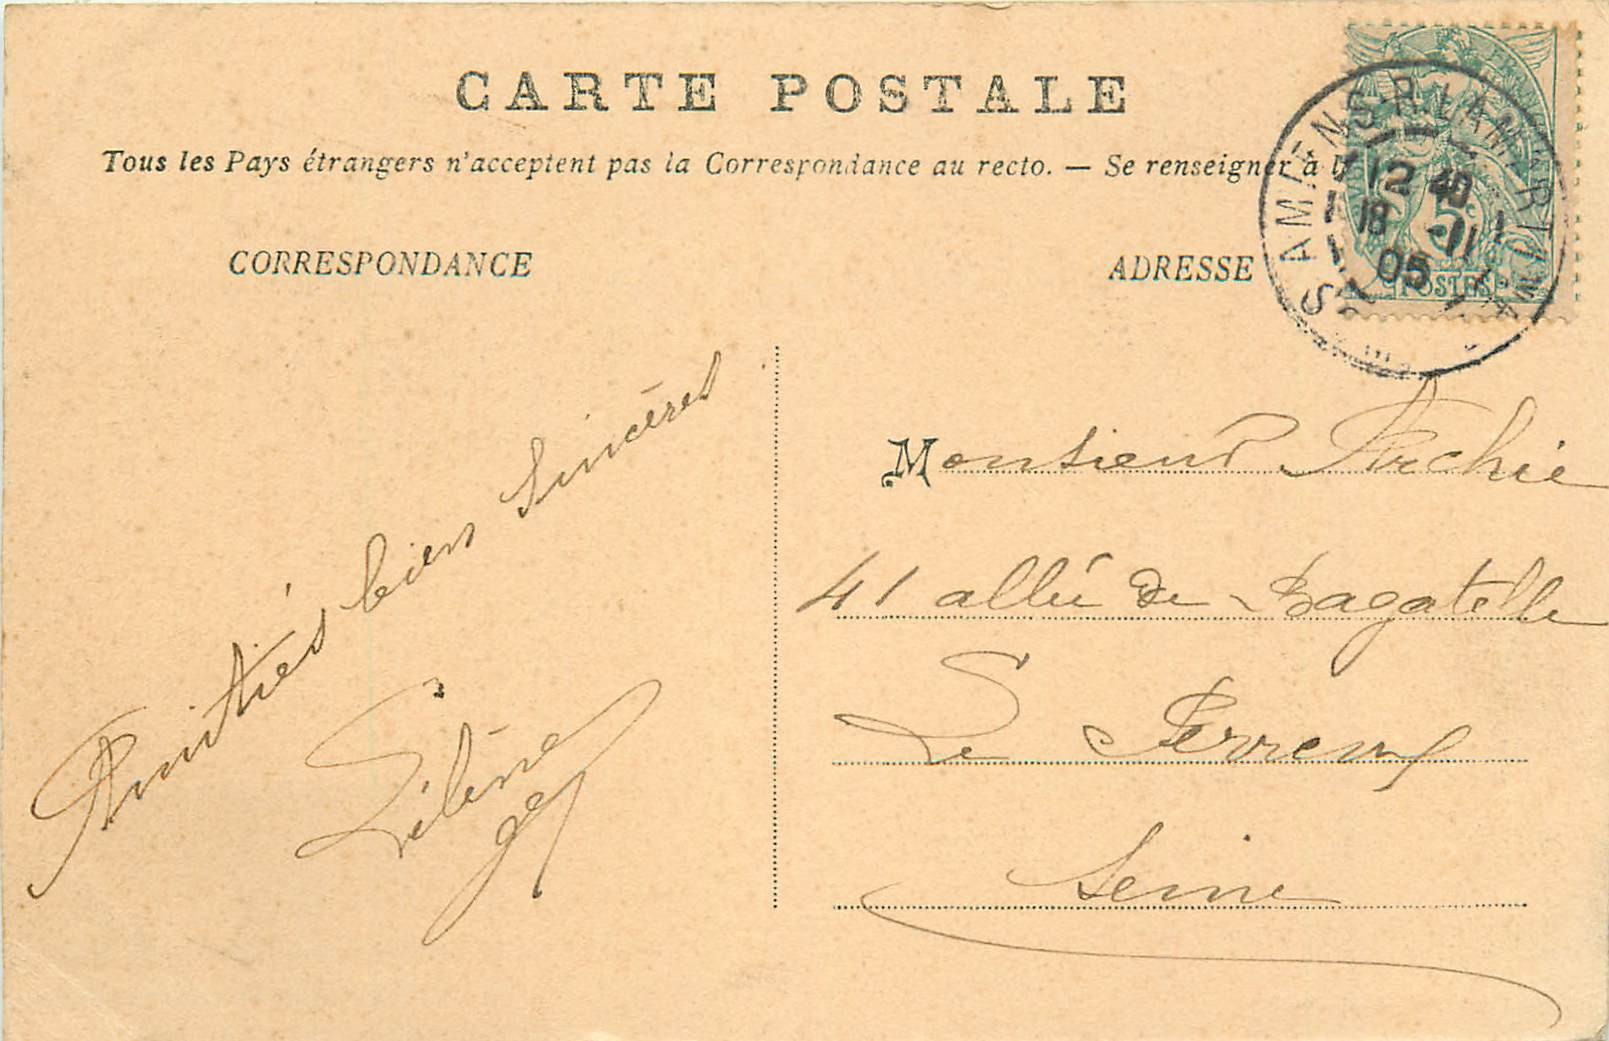 CARTE POSTALE
Tous les Pays étrangers n'acceptent pas la Correspondance au recto. — Se renseigner à l
CORRESPONDANCE
ADRESSE
AMIENS-R. LAMARTINE
12 40
18 -11
05
5c
POSTES
Amitiés bien Sincères
Monsieur Archie
41 allée de Bagatelle
Le Perreux
Seine